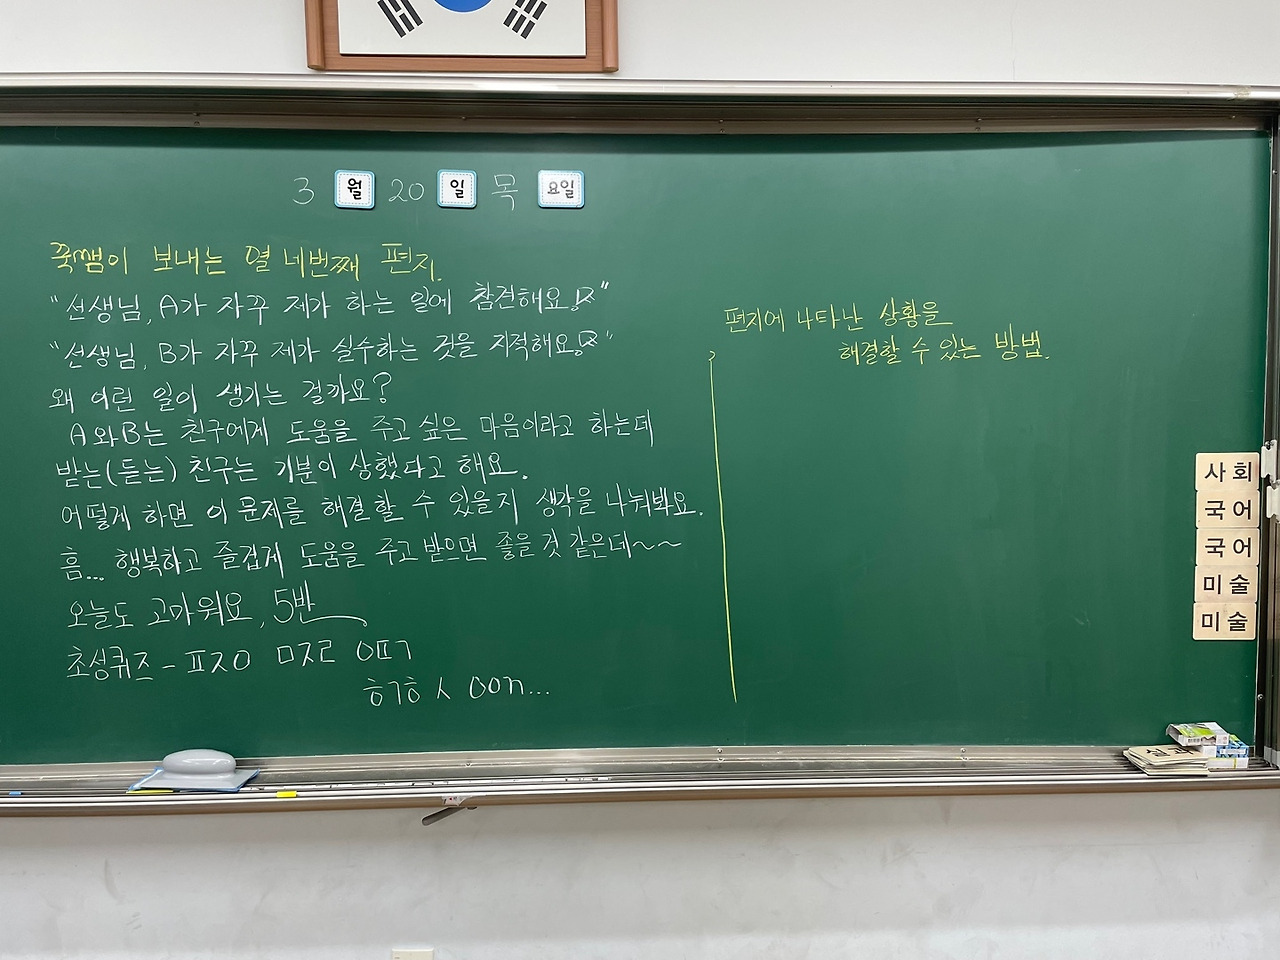 3 월 20 일 목 요일
꾹쌤이 보내는 열 네번째 편지.
"선생님, A가 자꾸 제가 하는 일에 참견해요!"
"선생님, B가 자꾸 제가 실수하는 것을 지적해요!"
왜 이런 일이 생기는 걸까요?
A와 B는 친구에게 도움을 주고 싶은 마음이라고 하는데
받는(듣는) 친구는 기분이 상했다고 해요.
어떻게 하면 이 문제를 해결할 수 있을지 생각을 나눠봐요.
흠... 행복하고 즐겁게 도움을 주고 받으면 좋을 것 같은데~~
오늘도 고마워요, 5반
초성퀴즈 - ㅍㅈㅇ ㅁㅈㄹ ㅇㄸㄱ
ㅎㄱㅎ ㅅ ㅇㅇㄲ...
편지에 나타난 상황을
해결할 수 있는 방법.
사회
국어
국어
미술
미술